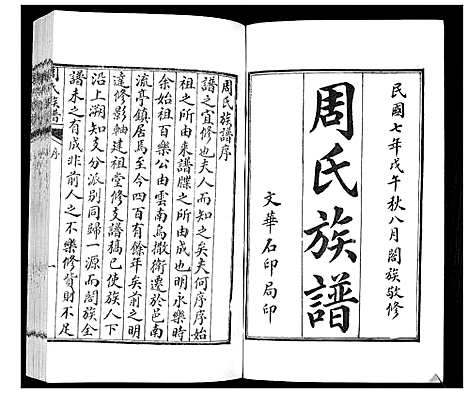 民國七年戊午秋八月闔族敬修
周氏族譜
文華石印局印
周氏族譜序
譜之宜修也夫人而知之矣夫何序序始
祖之所由来譜牒之所由起也明永樂時
余始祖百樂公由雲南烏撒衛遷於邑南
流亭鎮居焉至今四百有餘年矣前之明
達修影軸建祖堂修支譜稿已使族人下
沿上溯知支分派別同歸一源而闔族全
譜未之有成非前人之不樂修貲財不足
周氏族譜
序
一